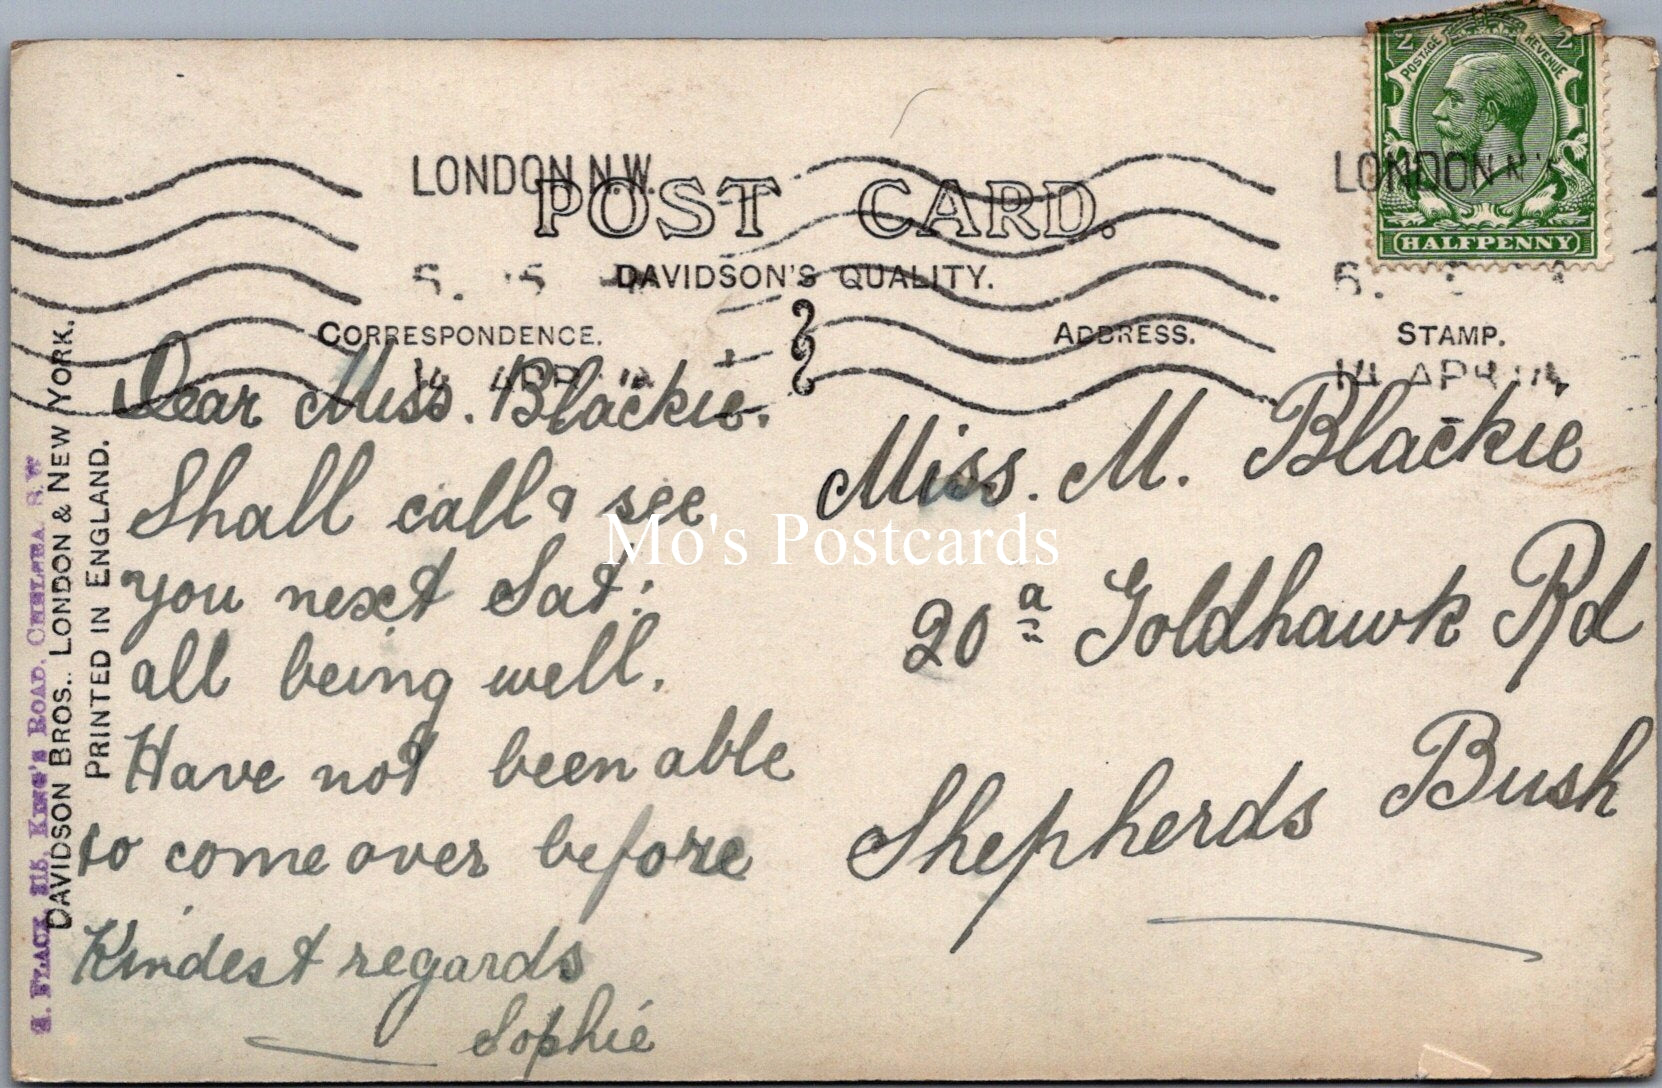 LONDON N.W.
POST CARD.
DAVIDSON'S QUALITY.
CORRESPONDENCE.
ADDRESS.
STAMP.
LONDON
14 APR 14
POSTAGE REVENUE
HALFPENNY
Dear Miss. Blackie.
Shall call & see
you next Sat:
all being well.
Have not been able
to come over before
Kindest regards
Sophie
Miss. M. Blackie
20a Goldhawk Rd
Shepherds Bush
Mo's Postcards
DAVIDSON BROS., LONDON & NEW YORK.
PRINTED IN ENGLAND.
315, KING'S ROAD, CHELSEA, S.W